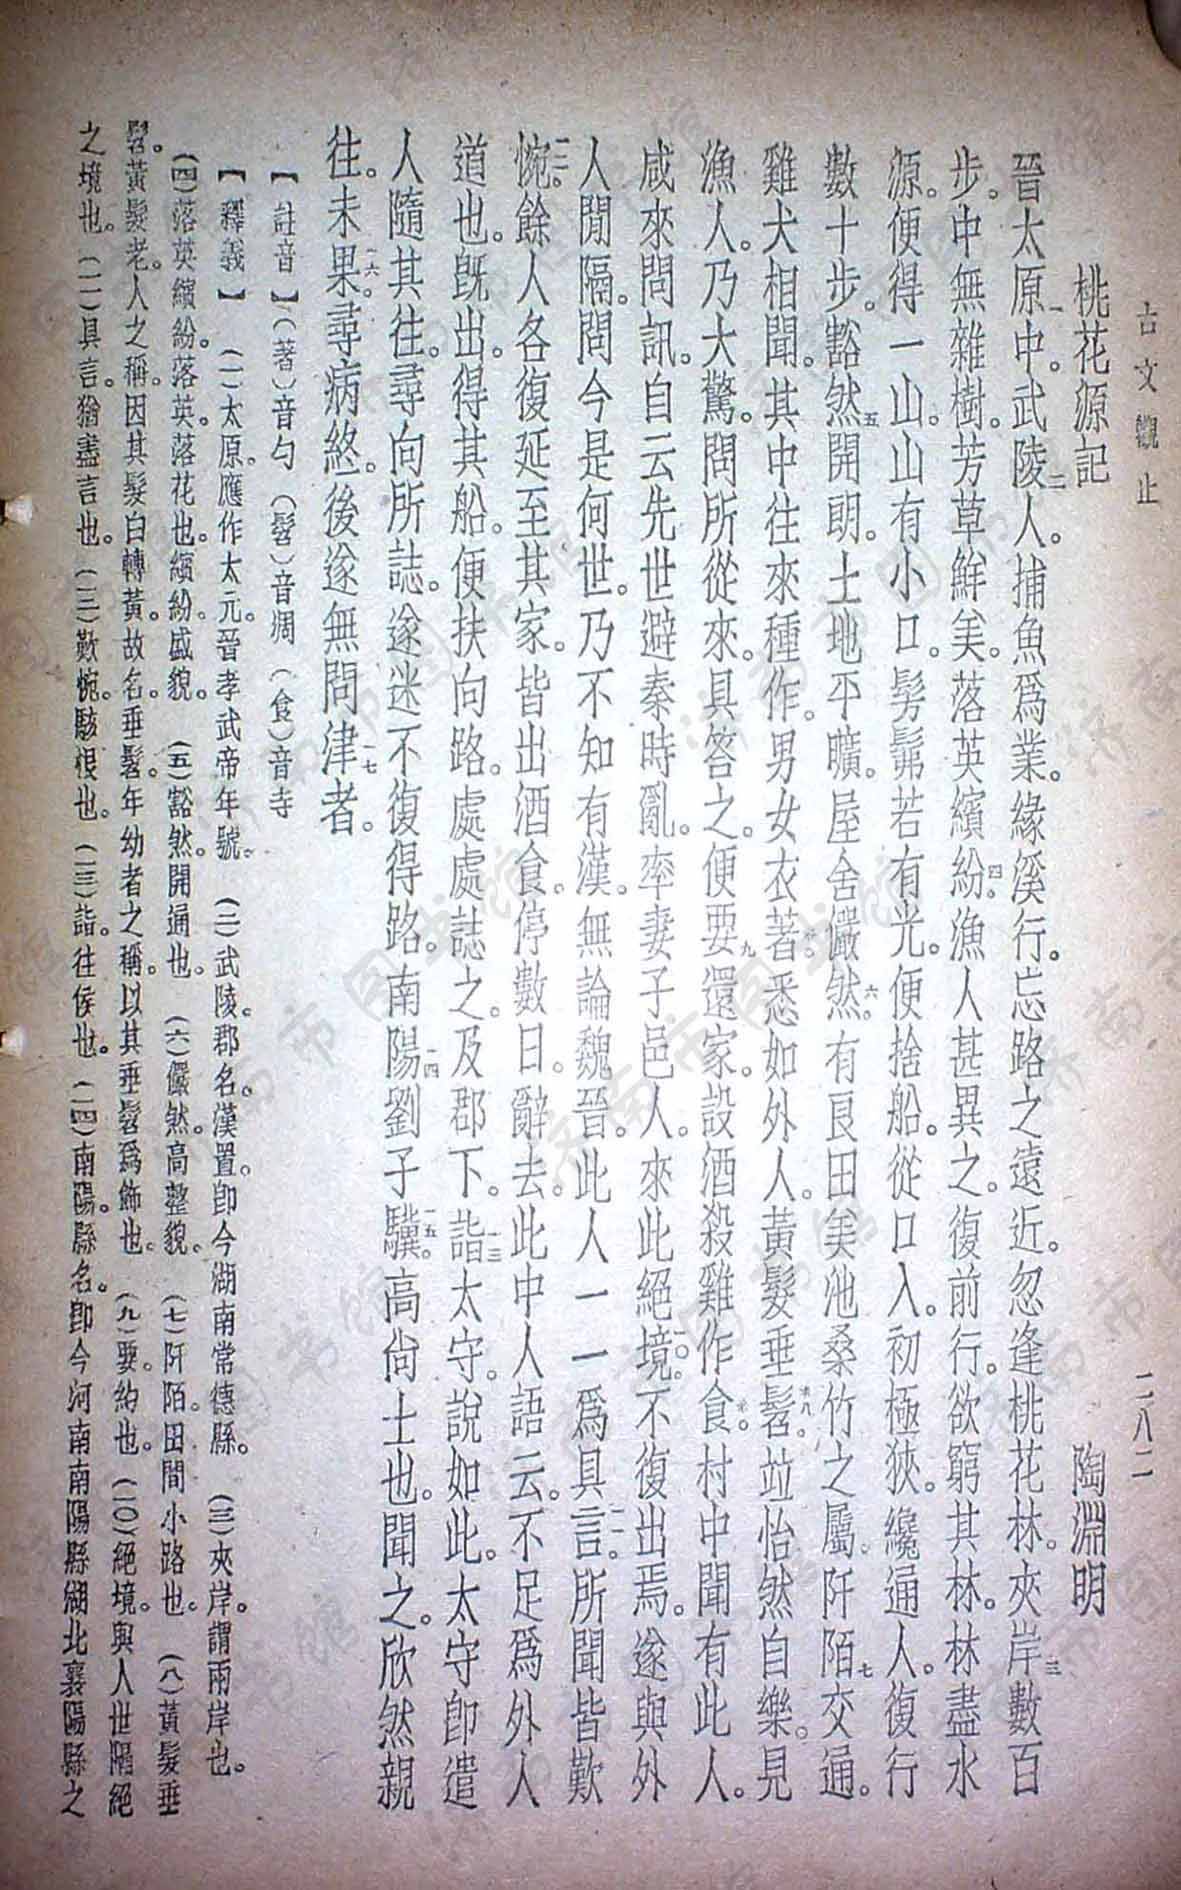 古文觀止
二八二
桃花源記
陶淵明
晉太原一中。武陵二人。捕魚爲業。緣溪行。忘路之遠近。忽逢桃花林。夾岸三數百
步。中無雜樹。芳草鮮美。落英繽紛四。漁人甚異之。復前行。欲窮其林。林盡水
源。便得一山。山有小口。髣髴若有光。便捨船。從口入。初極狹。纔通人。復行
數十步。豁然五開朗。土地平曠。屋舍儼然六。有良田美池桑竹之屬。阡陌七交通。
雞犬相聞。其中往來種作。男女衣著悉如外人。黃髮垂髫八。竝怡然自樂。見
漁人。乃大驚。問所從來。具答之。便要九還家。設酒殺雞作食。村中聞有此人。
咸來問訊。自云先世避秦時亂。率妻子邑人。來此絕境一〇。不復出焉。遂與外
人閒隔。問今是何世。乃不知有漢。無論魏晉。此人一一爲具言一一。所聞皆歎
惋一二。餘人各復延至其家。皆出酒食。停數日。辭去。此中人語云。不足爲外人
道也。旣出。得其船。便扶向路。處處誌之。及郡下。詣一三太守。說如此。太守卽遣
人隨其往。尋向所誌。遂迷不復得路。南陽一四劉子驥一五。高尙士也。聞之。欣然親
往。未果一六。尋病終。後遂無問津一七者。
【註音】（著）音勺（髫）音凋（食）音寺
【釋義】（一）太原。應作太元。晉孝武帝年號。（二）武陵。郡名。漢置。卽今湖南常德縣。（三）夾岸。謂兩岸也。
（四）落英繽紛。落英。落花也。繽紛。盛貌。（五）豁然。開通也。（六）儼然。高整貌。（七）阡陌。田間小路也。（八）黃髮垂
髫。黃髮。老人之稱。因其髮白轉黃。故名。垂髫。年幼者之稱。以其垂髫爲飾也。（九）要。約也。（一〇）絕境。與人世隔絕
之境也。（一一）具言。猶盡言也。（一二）歎惋。駭恨也。（一三）詣。往候也。（一四）南陽。縣名。卽今河南南陽縣湖北襄陽縣之